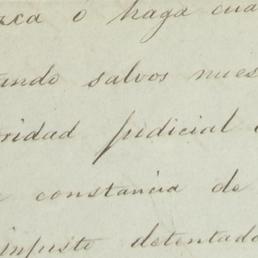 zca ó haga cua
ando salvos nues
ridad judicial
constancia de
injusto detentado